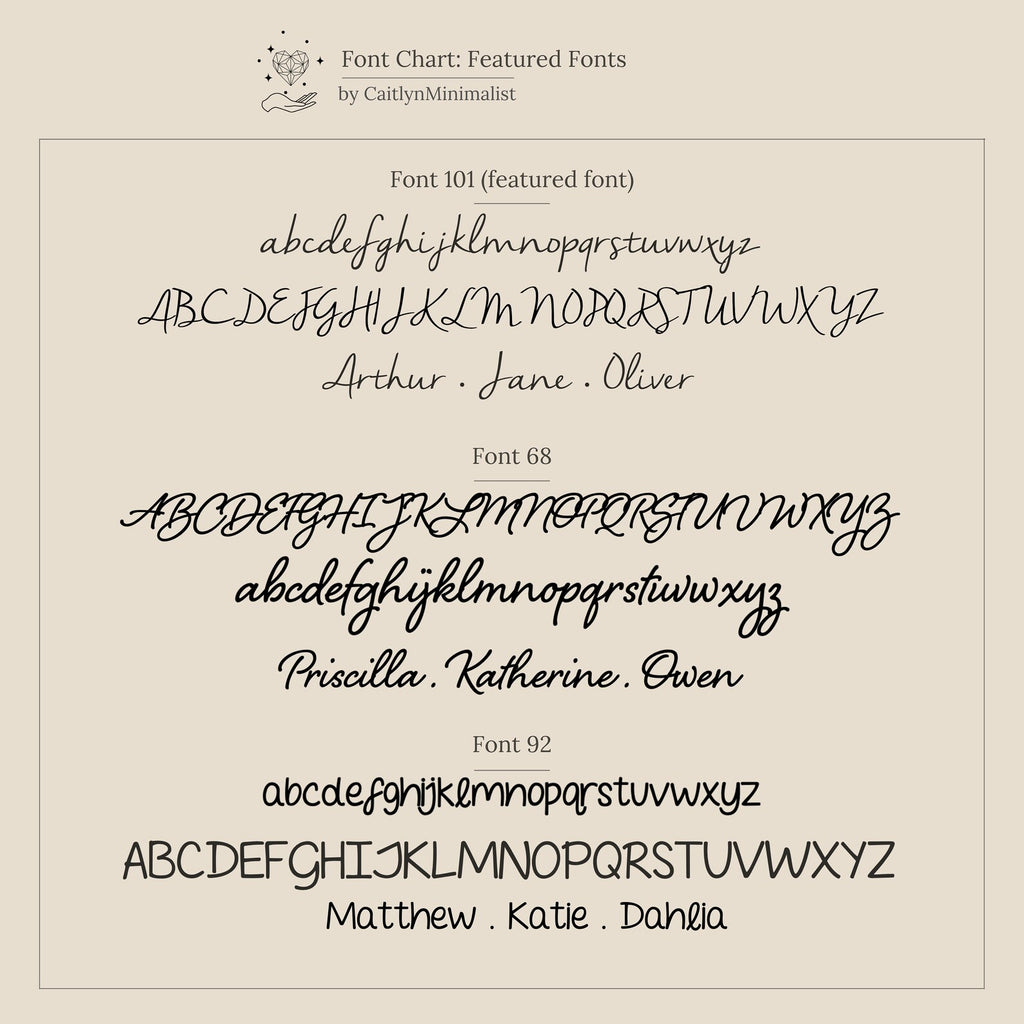 Font Chart: Featured Fonts
by CaitlynMinimalist
Font 101 (featured font)
abcdefghijklmnopqrstuvwxyz
ABCDEFGHIJKLMNOPQRSTUVWXYZ
Arthur . Jane . Oliver
Font 68
ABCDEFGHIJKLMNOPQRSTUVWXYZ
abcdefghijklmnopqrstuvwxyz
Priscilla . Katherine . Owen
Font 92
abcdefghijklmnopqrstuvwxyz
ABCDEFGHIJKLMNOPQRSTUVWXYZ
Matthew . Katie . Dahlia